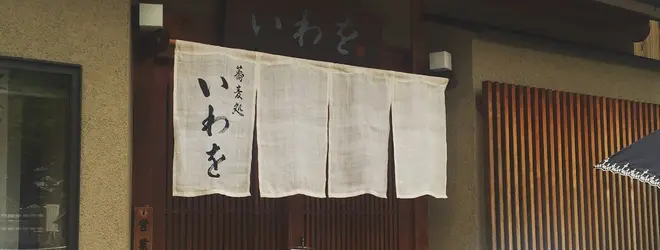 いわを
蕎麦処
いわを
営業